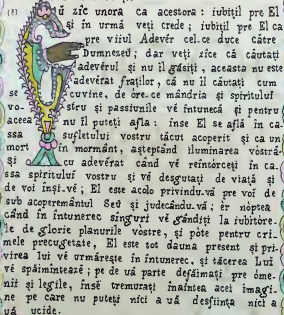 (1) Eŭ zic unora ca acestora : iubiții pre El
și in urmă veți crede ; iubiții pre El ca
pre viiul Adevĕr cel.ce duce cătrĕ
Dumneseŭ ; dar veți zice că căutați
adevĕrul și nu'l găsiți, aceasta nu este
adevĕrat fraților, că nu îl căutați cum se
cuvine, de ore.ce mândria și spiritului
vostru și passiunile vĕ întunecă și pentru
aceea nu îl puteți afla ; inse El se află in casa
sufletului vostru tăcut acoperit și ca un
mort în mormânt, așteptând iluminarea vóstrĕ
și cu adevĕrat când vĕ reîntórceți în casa
spiritului vostru și vĕ desgutați de viață și
de voi înși.vĕ ; El este acolo privindu.vă pre voi de
sub acoperemântul Seŭ și judecându.vă ; èr nóptea
când în întunerec singuri vĕ gândiți la iubitorele
de glorie planurile vóstre, și póte pentru crimele
precugetate, El este tot dauna present și privirea
lui vĕ urmărește în întunerec, și tăcerea Lui
vĕ spăimîntéză ; pe de uă parte defăimați pre ómenii
și legile, însĕ tremurați înaintea acei imagine
pe care nu puteți nici a uă desființa nici a
uă ucide.